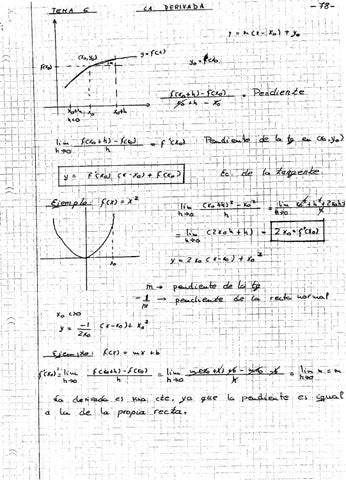 TEMA 6 LA DERIVADA -78-
y = m(x-x₀) + y₀
(x₀,y₀) y = f(x)
f(x₀) y₀ = f(x₀)
x₀+h x₀ x₀+h
h<0
f(x₀+h) - f(x₀) / x₀+h - x₀ = Pendiente
lim h→0 f(x₀+h) - f(x₀) / h = f'(x₀) Pendiente de la tg en (x₀,y₀)
y = f'(x₀) (x-x₀) + f(x₀) Ec. de la tangente
Ejemplo: f(x) = x²
lim h→0 (x₀+h)² - x₀² / h = lim h→0 x₀² + h² + 2x₀h - x₀² / h
= lim h→0 (2x₀+h) = 2x₀ = f'(x₀)
x₀
y = 2x₀ (x-x₀) + x₀²
m → pendiente de la tg
-1/m → pendiente de la recta normal
y = -1/2x₀ (x-x₀) + x₀²
Ejemplo: f(x) = mx + b
f'(x₀) = lim h→0 f(x₀+h) - f(x₀) / h = lim h→0 m(x₀+h) + b - mx₀ - b / h = lim h→0 m = m
La derivada es una cte, ya que la pendiente es igual
a la de la propia recta.